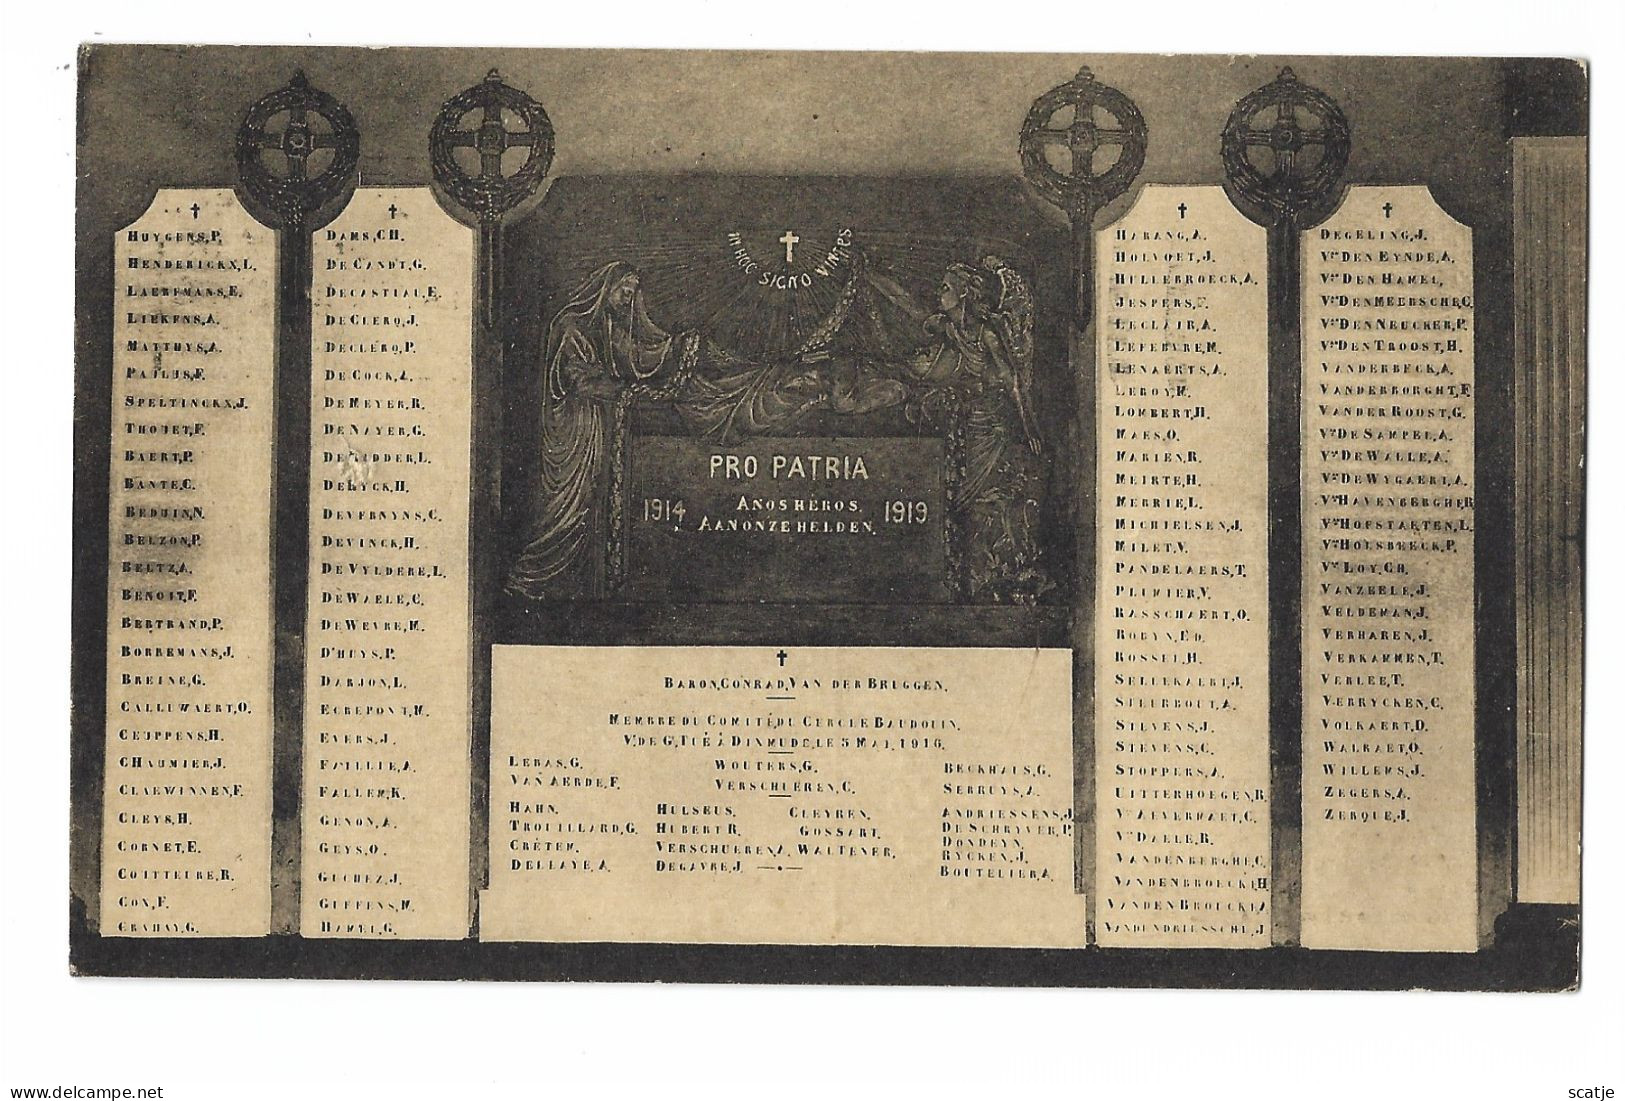 HUYGENS,P.
HENDERICKX,L.
LAEREMANS,E.
LIEKENS,A.
MATTHYS,A.
PAULUS,F.
SPELTINCKX,J.
THOUET,F.
BAERT,P.
BANTE,C.
BEDUIN,N.
BELZON,P.
BELTZ,A.
BENOIT,F.
BERTRAND,P.
BORREMANS,J.
BREINE,G.
CALLUWAERT,O.
CEUPPENS,H.
CHAUMIER,J.
CLAEWINNEN,F.
CLEYS,H.
CORNET,E.
COX,F.
DAMS,CH.
DE CANDT,G.
DE CLERQ,J.
DECLERQ,P.
DE COCK,A.
DE MEYER,R.
DE NAYER,G.
DE RIDDER,L.
DERYCK,H.
DEVERNYNS,C.
DEVINCK,H.
DE VYLDERE,L.
DE WAELE,C.
DE WEVRE,M.
D'HUYS,P.
DARJON,L.
ECREPONT,M.
EVERS,J.
FAILLIE,A.
FALLEM,K.
GENON,A.
GEYS,O.
GUCHEZ,J.
GUFFENS,M.
HAMEL,G.
IN HOC SIGNO VINCES
PRO PATRIA
1914 1919
A NOS HÉROS.
AAN ONZE HELDEN.
BARON,CONRAD,VAN DER BRUGGEN.
MEMBRE DU COMITÉ,DU CERCLE BAUDOUIN.
V.DE G,TUÉ À DIXMUDE,LE 5 MAI,1916.
LEBAS,G. WOUTERS,G. BECKHAUS,G.
VAN AERDE,F. VERSCHUEREN,C. SERRUYS,A.
HAHN. HULSEUS. CLEYREN. ANDRIESSENS,J.
TROUILLARD,G. HUBERT R. GOSSART. DE SCHRYVER,P.
CRÉTEM. VERSCHUEREN,A. WALTENER. DONDEYN.
RYCKEN,J.
DELLAYE,A. DEGAVRE,J. BOUTELIER,A.
HARANG,A.
HOLVOET,J.
HULLEBROECK,A.
JESPERS,F.
LECLAIR,A.
LEFEBVRE,M.
LENAERTS,A.
LEROY,M.
LOMBERT,H.
MAES,O.
MARIEN,R.
MEIRTE,H.
MERRIE,L.
MICHIELSEN,J.
MILET,V.
PANDELAERS,T.
PLUMIER,V.
RASSCHAERT,O.
ROBYN,ED.
ROSSEL,H.
SELLEKAERT,J.
STEURBOUT,A.
STEVENS,J.
STEVENS,C.
STOPPERS,A.
UITTERHOEGEN,R.
VAN DAELE,R.
VANDENBERGHE,C.
VANDENBROECKE,H.
VANDEN BROUCKE,A
VANDENDRIESSCHE,J
DEGELING,J.
VAN DEN EYNDE,A.
VAN DEN HAMEL,
VAN DEN MEERSCHE,C.
VAN DEN NEUCKER,P.
VAN DEN TROOST,H.
VANDERBECK,A.
VANDERBORGHT,F.
VANDER ROOST,G.
VAN DE SAMPEL,A.
VAN DE WALLE,A.
VAN DE WYGAERT,A.
VAN HAVENBERGHE,R
VAN HOFSTAETEN,L.
VAN HOLSBEECK,P.
VAN LOY,CH.
VANZEELE,J.
VELDEMAN,J.
VERHAREN,J.
VERKAMMEN,T.
VERLEE,T.
VERRYCKEN,C.
VOLKAERT,D.
WALRAET,O.
WILLEMS,J.
ZEGERS,A.
ZERQUE,J.
delcampe.net
scatje